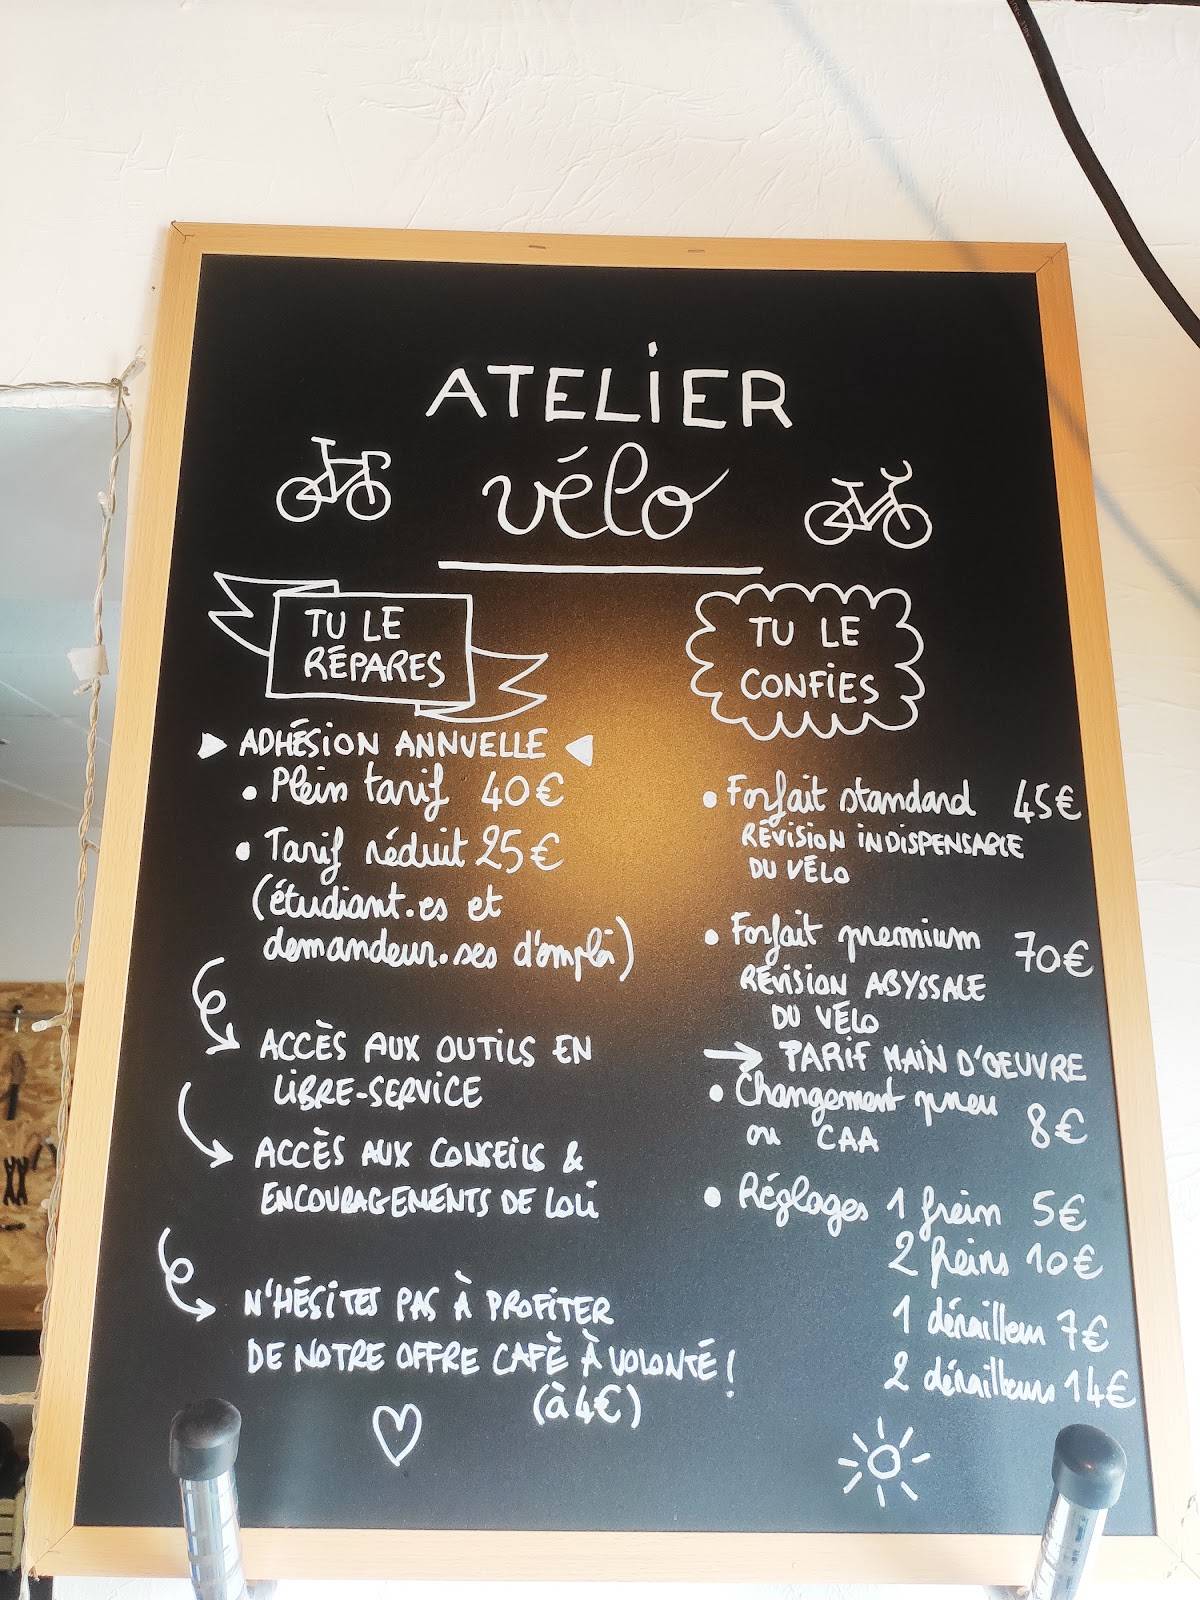 ATELIER
vélo
TU LE
RÉPARES
ADHÉSION ANNUELLE
• Plein tarif 40€
• Tarif réduit 25€
(étudiant.es et
demandeur.ses d'emploi)
ACCÈS AUX OUTILS EN
LIBRE-SERVICE
ACCÈS AUX CONSEILS &
ENCOURAGEMENTS DE LOLI
N'HÉSITES PAS À PROFITER
DE NOTRE OFFRE CAFÈ À VOLONTÉ !
(à 4€)
TU LE
CONFIES
• Forfait standard 45€
RÉVISION INDISPENSABLE
DU VÉLO
• Forfait premium 70€
RÉVISION ABYSSALE
DU VÉLO
→ TARIF MAIN D'OEUVRE
• Changement pneu
ou CAA 8€
• Réglages 1 frein 5€
2 freins 10€
1 dérailleur 7€
2 dérailleurs 14€